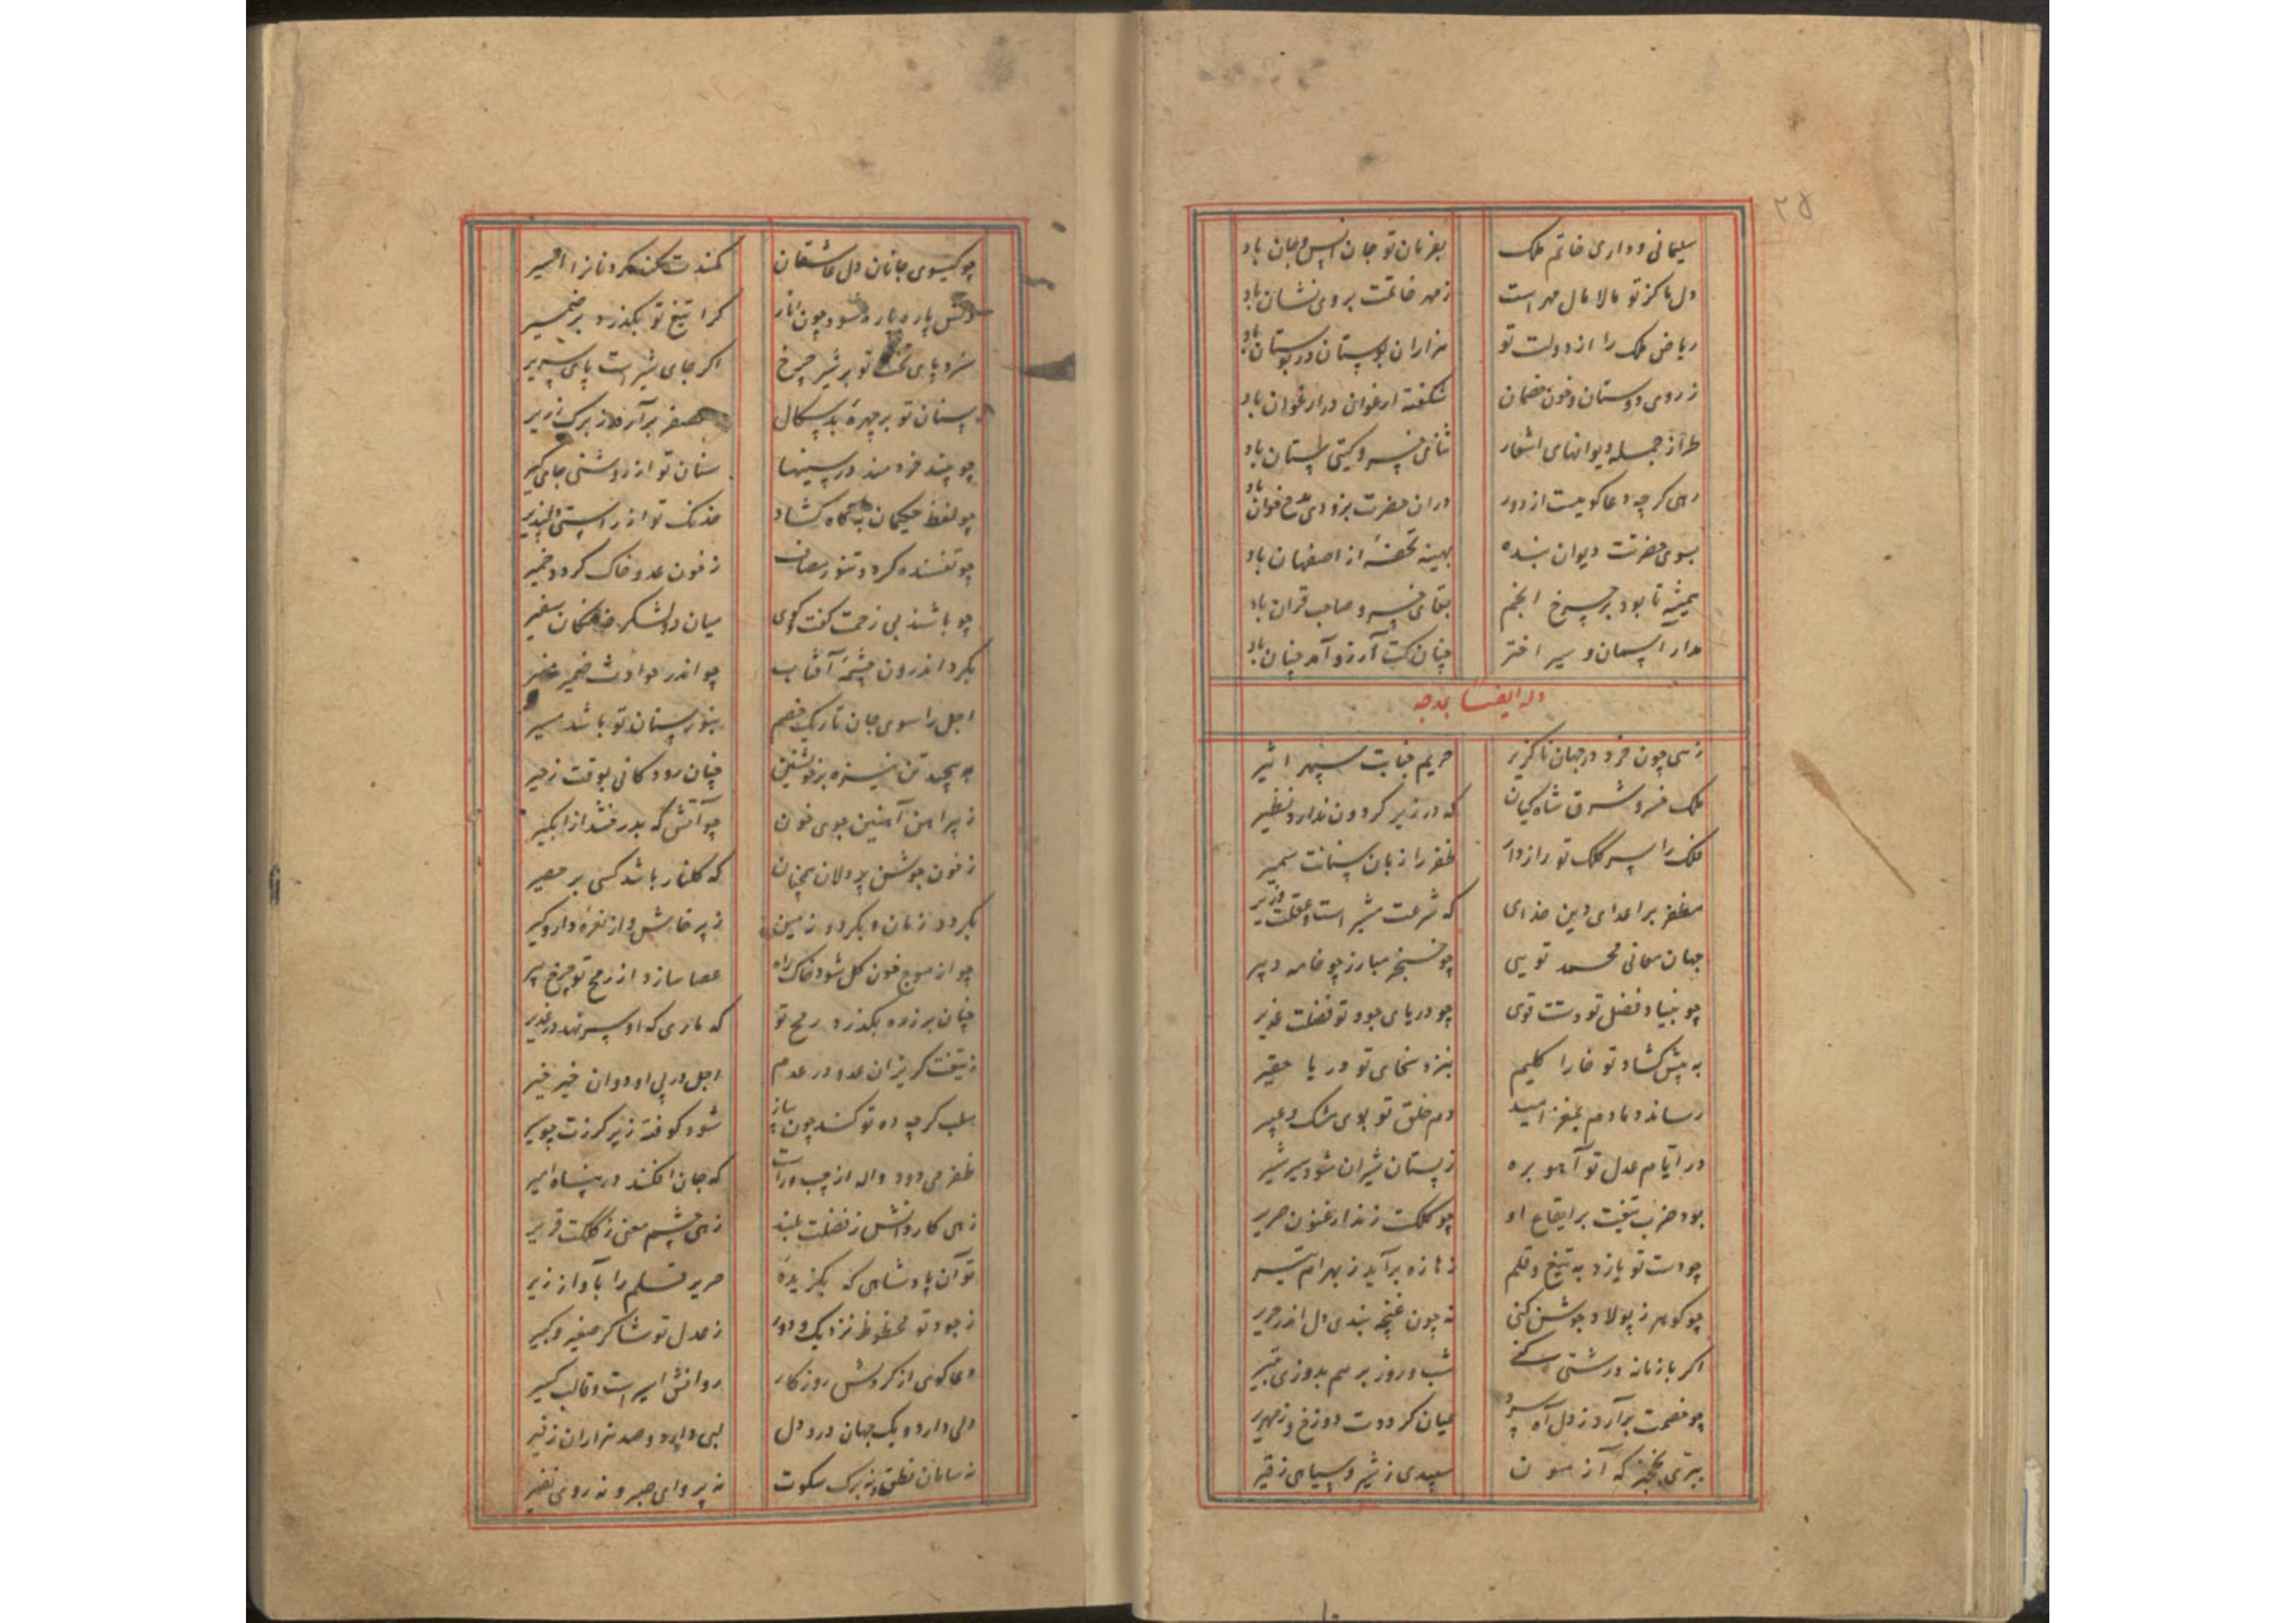 ۲۵
سلیمانی و داری خاتم ملک بفرمان تو جان انس و جان باد
دل ما کز تو مالا مال مهر است ز مهر خاتمت بروی نشان باد
ریاض ملک را از دولت تو هزاران بوستان در بوستان باد
ز روی دوستان و خون خصمان شکفته ارغوان در ارغوان باد
طراز جمله دیوانهای اشعار ثنای خسرو کیتی ستان باد
رهی کر چه دعا کویست از دور دران حضرت بزودی مدح خوان باد
بسوی حضرتت دیوان بنده بهینه تحفهٔ از اصفهان باد
همیشه تا بود بر چرخ انجم بقای خسرو صاحب قران باد
مدار آسمان و سیر اختر چنان کت آرزو آمد چنان باد
وله ایضا یمدحه
زهی چون خرد در جهان ناکزیر حریم جنابت سپهر اثیر
ملک خسرو شرق شاه کیان که در زیر کردون ندارد نظیر
ملک را سر کلک تو رازدار ظفر را زبان سنانت سمیر
مظفر بر اعدای دین خدای که شرعت مشیر است و عقلت وزیر
جهان معانی محمد تویی چو خنجر مبارز چو خامه دبیر
چو بنیاد فضل تو دستت قوی چو دریای جود تو فضلت غزیر
به پیش کشاد تو خارا کلیم بنزد سخای تو دریا حقیر
رساند دمادم بمغز امید دم خلق تو بوی مشک و عبیر
در ایام عدل تو آهو بره ز پستان شیران شود سیر شیر
بود ضرب تیغت بر ایقاع او چو کلکت زند ارغنون صریر
چو دست تو یازد به تیغ و قلم
چو کوهر ز پولاد جوشن کنی نه چون غنچه بندی دل اندر حریر
اکر با زمانه درشتی کنی شب و روز بر هم بدوزی بتیر
چو خصمت برآرد ز دل آه سرد عیان کرددت دوزخ و زمهریر
ببری بخنجر که آزمون سپیدی ز شیر و سیاهی ز قیر
چو کیسوی جانان دل عاشقان کمندت کند کردنانرا اسیر
دلش پاره پاره شود چون انار کرا تیغ تو بکذرد بر ضمیر
سزد پای تخت تو بر شیر چرخ اکر جای شیر است پای سریر
سنان تو بر چهرهٔ بدسکال برآرد ز برک زریر
چو پند خردمند در سینها سنان تو از روشنی جای کیر
چو لفظ حکیمان بکاه کشاد خدنک تو از راستی دلپذیر
چو تفسنده کردد تنور مصاف ز خون عدو خاک کردد خمیر
چو باشد بی زحمت کفت کوی میان دو لشکر خدنکان سفیر
بکرد اندرون چشمهٔ آفتاب چو اندر حوادث ضمیر
اجل را سوی جان تاریک خصم بنور سنان تو باشد مسیر
بپیچد تن نیزه بر خویشتن چنان رود کانی بوقت زحیر
ز پیراهن آهنین جوی خون چو آتش که بدرخشد از آبکیر
ز خون جوشن پر دلان همچنان که کلنار باشد کسی بر حصیر
بکردد زمان و بکردد زمین ز پرخاش و از نعره دار و کیر
چو از موج خون کل شود خاک راه عصا سازد از رمح تو چرخ پیر
چنان بر زره بکذرد رمح تو که ماری که او سر نهد در غدیر
ز تیغت کریزان عدو در عدم اجل در پی او دوان خیر خیر
سلب کر چه ده تو کند چون پیاز شود کوفته زیر کرزت چو سیر
ظفر می دود واله از چپ و راست که جان افکند در پناه امیر
زهی کار دانش ز فضلت بلند زهی چشم معنی ز کلکت قریر
تو آن پادشاهی که بکزیدهٔ صریر قلم را بآواز زیر
ز جود تو محظوظ نزدیک و دور ز عدل تو شاکر صغیر و کبیر
دعاکوی از کردش روزکار روانش اسیر است و قالب کسیر
دلی دارد و یک جهان درد دل لبی دارد و صد هزاران زفیر
نه سامان نطق و نه برک سکوت نه پروای صبر و نه روی نفیر